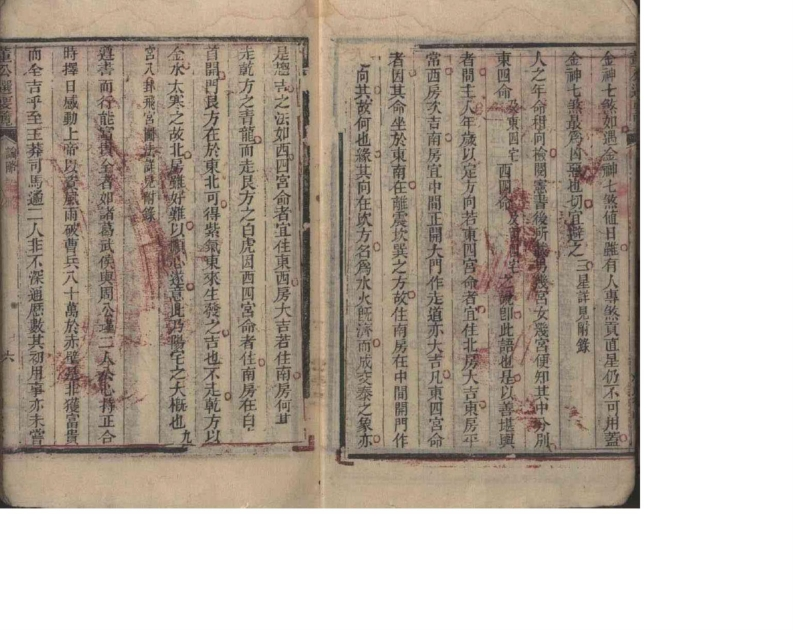 金神七煞如遇金神七煞值日雖有人專煞貢直星仍不可用蓋
金神七煞最為凶惡也切宜避之 三星詳見附錄
人之年命相向檢閱憲書後所載男幾宮女幾宮便知其中分別
東四命 係東四宅 西四命 之說即此語也是以善堪輿
者問主人年歲以定方向若東四宮命者宜住北房大吉東房平
常西房次吉南房宜中間正開大門作走道亦大吉凡東四宮命
者因其命坐於東南在離震坎巽之方故住南房在中間開門作
向其故何也緣其向在坎方名為水火既濟而成交泰之象亦
是趨吉之法如西四宮命者宜住東西房大吉若住南房何
走乾方之青龍而走艮方之白虎因西四宮命者住南房在白
首開門艮方在於東北可得紫氣東來生發之吉也不走乾方以
金水太寒之故北房雖好難以順心遂意此乃陽宅之大概也 九
宮八卦飛宮圖法詳見附錄
遵書而行能富與全者如諸葛武侯與周公瑾二人公心持正合
時擇日感動上帝以者風雨破曹兵八十萬於赤壁是非獲富貴
而全吉乎至王莽司馬遹二人非不深通曆數其初用事亦未嘗
董公選要覽
六